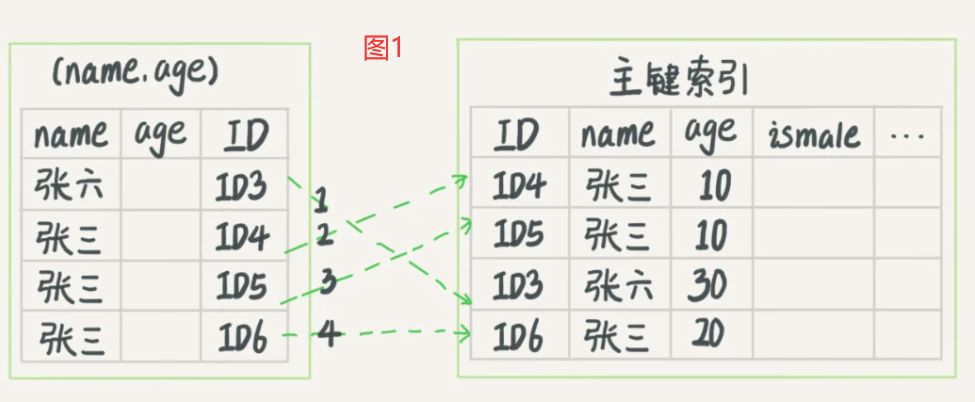 图1
(name.age)
name age ID
张六 ID3
张三 ID4
张三 ID5
张三 ID6
1
2
3
4
主键索引
ID name age ismale ...
ID4 张三 10
ID5 张三 10
ID3 张六 30
ID6 张三 20